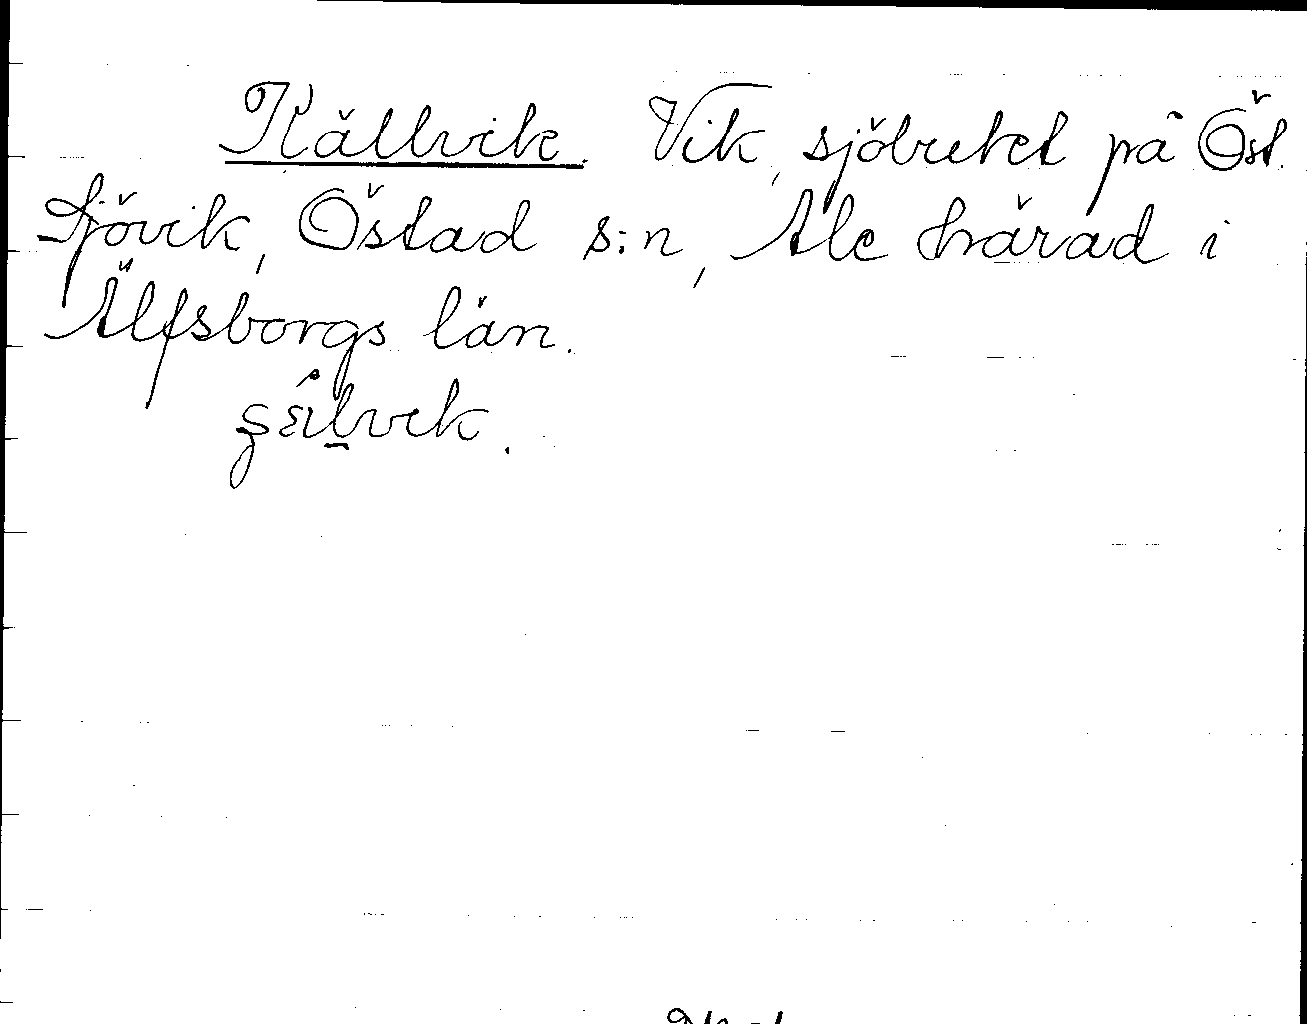 Källvik. Vik, sjöbukt på Öst.
Sjövik, Östad s:n, Ale härad i
Älfsborgs län.